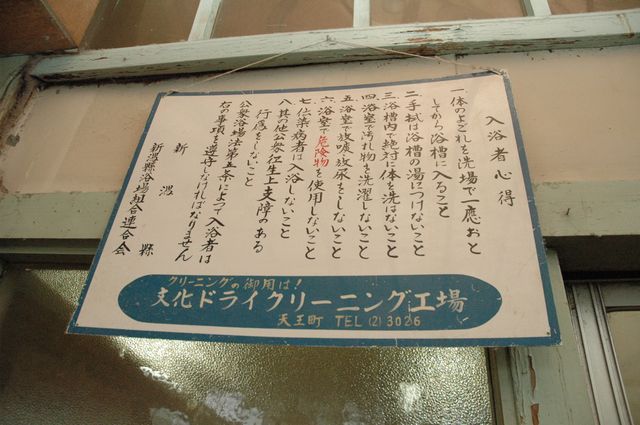 入浴者心得
一、体のよごれを洗場で一應おと
してから浴槽に入ること
二、手拭は浴槽の湯につけないこと
三、浴槽内で絶対に体を洗はないこと
四、浴室で汚れ物を洗濯しないこと
五、浴室で放唾放尿をしないこと
六、浴室で危険物を使用しないこと
七、伝染病者は入浴しないこと
八、其の他公衆衛生上支障のある
行為をしないこと
公衆浴場法第五条によって入浴者は
右の事項を遵守しなければなりません
新潟縣
新潟縣浴場組合連合会
クリーニングの御用は!
文化ドライクリーニング工場
天王町 TEL (2) 3026